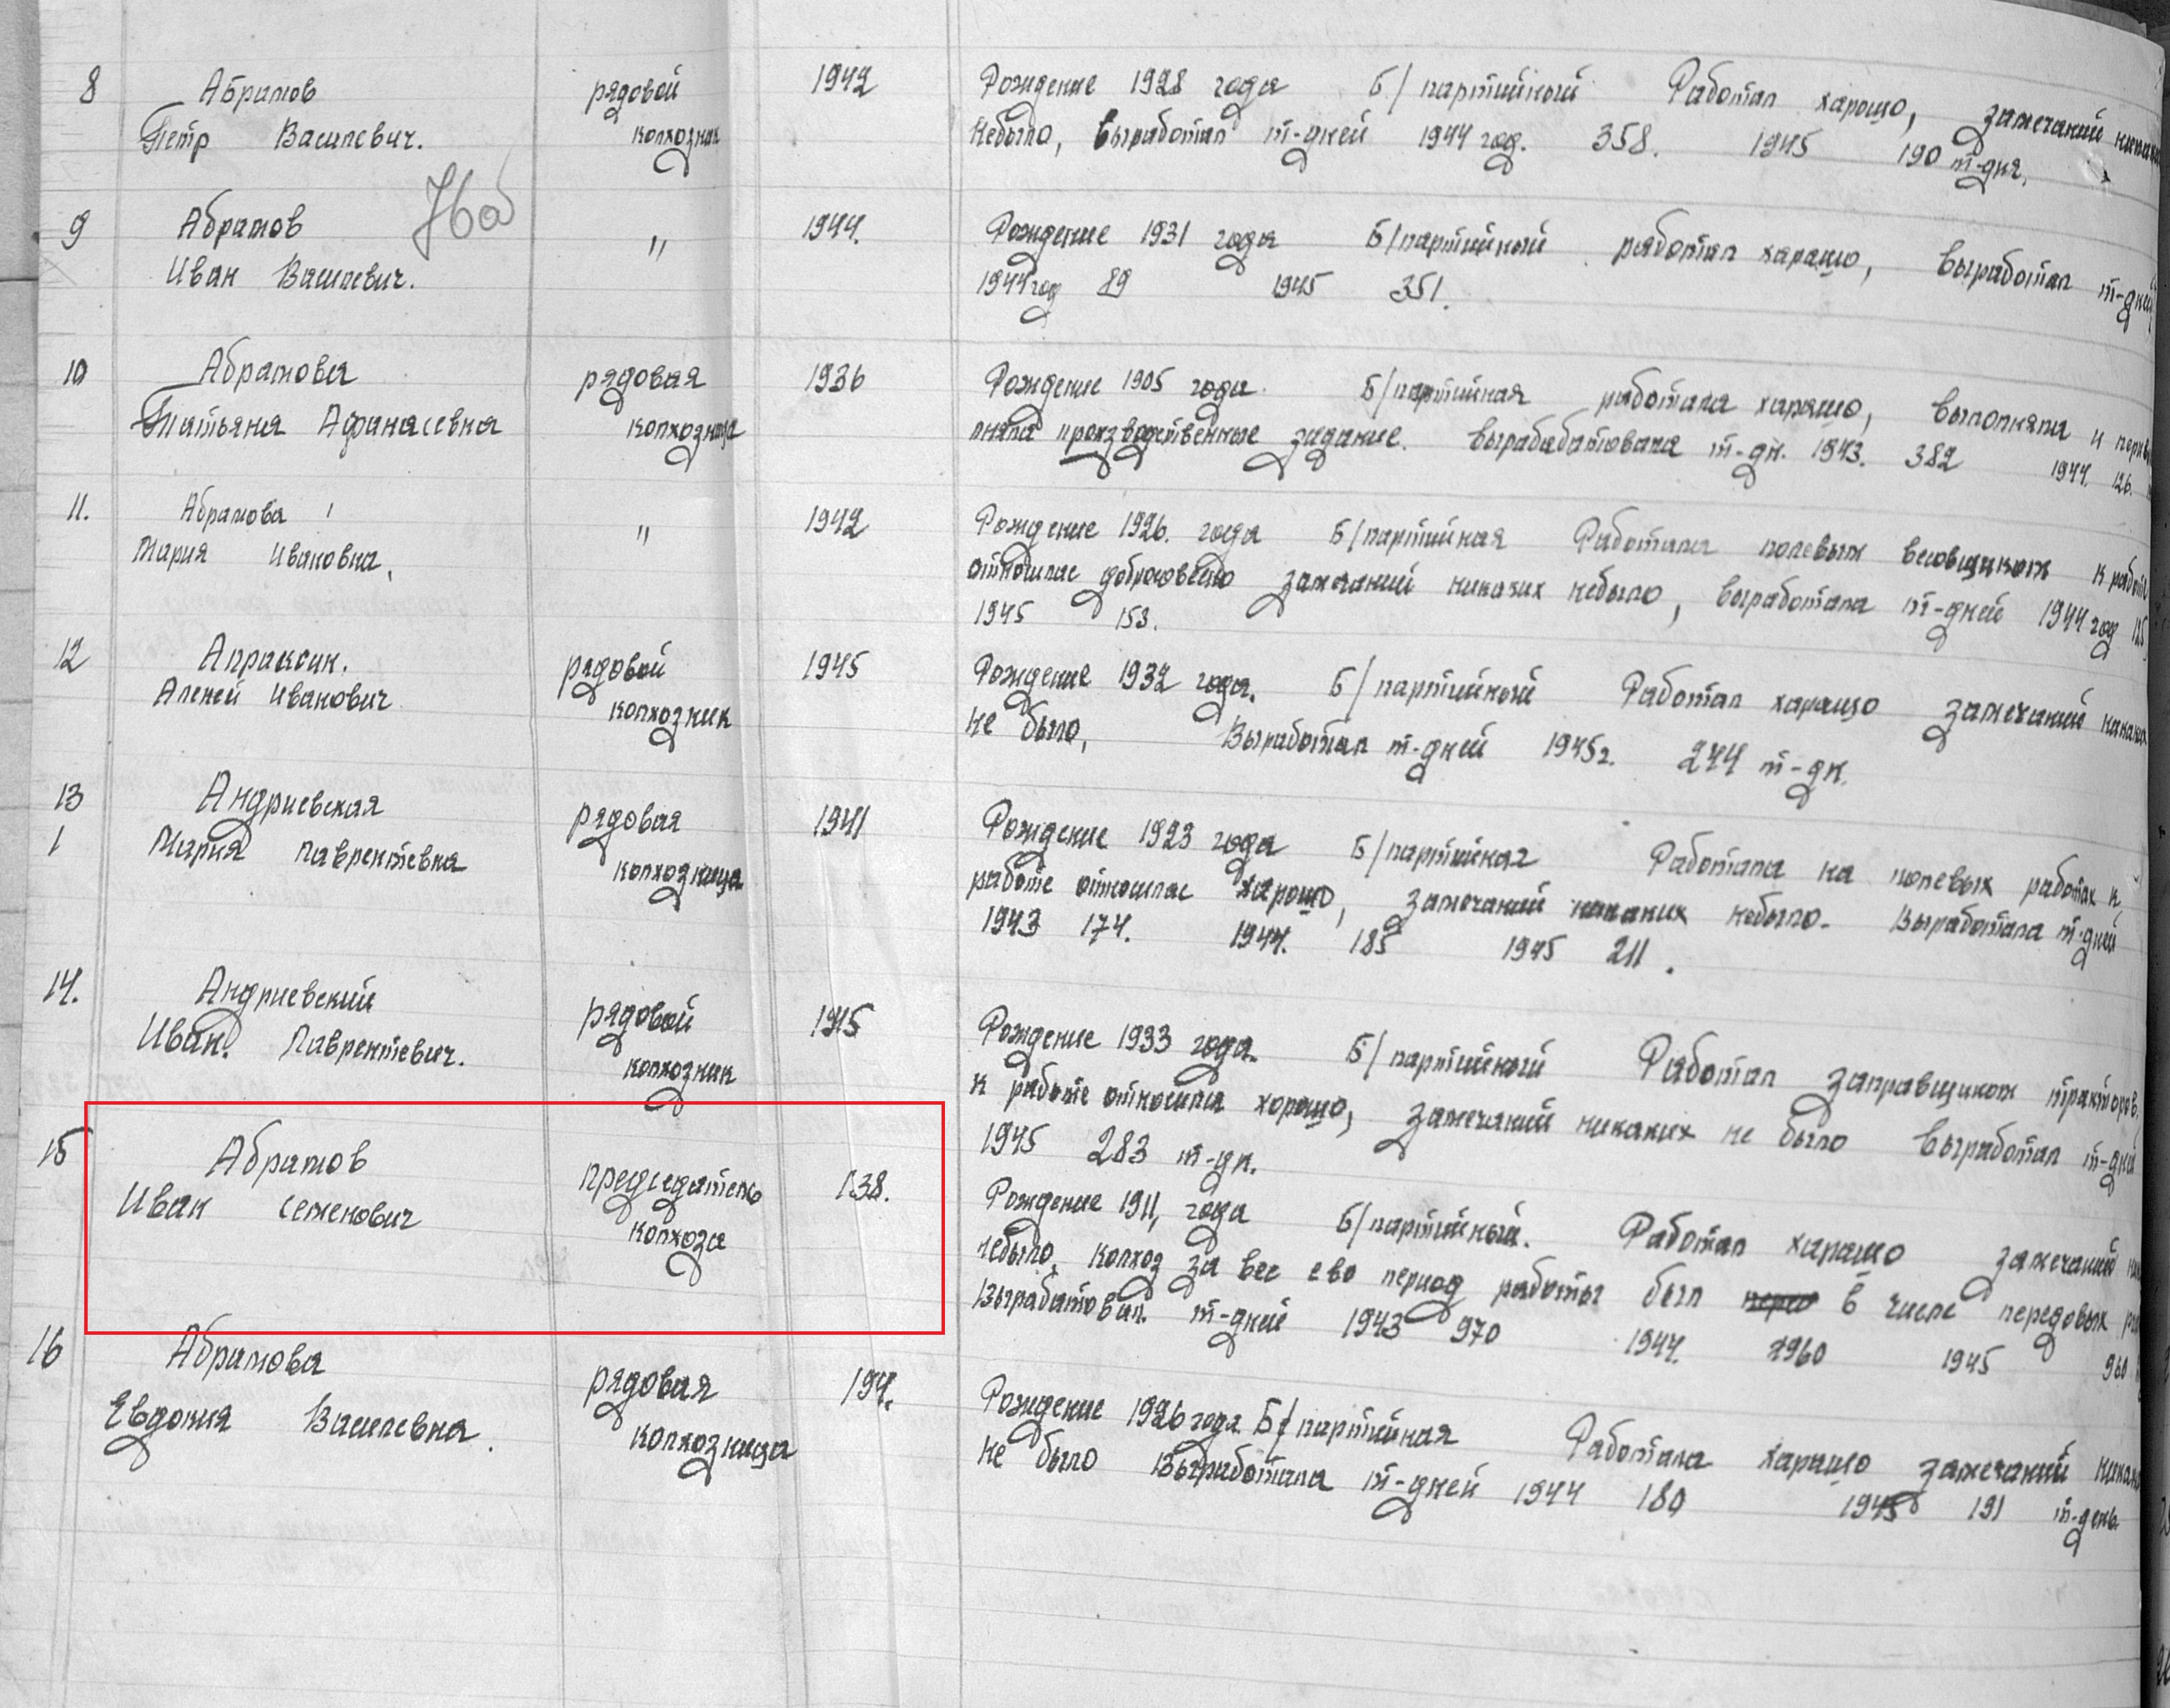 8 Абрамов рядовой 1942 Рождение 1928 года Б/партийный Работал харошо, замечаний
Петр Василевич. колхозник небыло, выработал т-дней 1944 год. 358. 1945 190 т-дня.
76а
9 Абрамов " 1944. Рождение 1931 года Б/партийный работал харашо, выработал т-дней
Иван Василевич. 1944 год 89 1945 351.
10 Абрамова рядовая 1936 Рождение 1905 года. Б/партийная работала харашо, выполняла и
Татьяна Афанасевна колхозница лняла производственные задание. Вырабабатовала т-дн. 1943. 382 1944. 126.
11. Абрамова " 1942 Рождение 1926. года Б/партийная Работала полевым весовщиком к работе
Мария Ивановна, отношлас добросовесно замечаний никаких небыло, выработала т-дней 1944 год 125
1945 153.
12 Апраксин. рядовой 1945 Рождение 1932 года. Б/партийный Работал харашо замечаний никаких
Алекей Иванович колхозник не было, Выработал т-дней 1945г. 244 т-дн.
13 Андриевская рядовая 1941 Рождение 1923 года Б/партийная Работала на полевых работах к
1 Мария Лаврентевна колхозница работе отношлас харошо, замечаний никаких небыло. Выработала т-дней
1943 174. 1944. 185 1945 211.
14. Андриевский рядовой 1945 Рождение 1933 года. Б/партийный Работал заправщиком тракторов.
Иван. Лаврентевич. колхозник к работе относился хорошо, замечаний никаких не было выработал т-дней
1945 283 т-дн.
15 Абрамов председатель 138. Рождение 1911, года Б/партийный. Работал харашо замечаний
Иван Семенович колхоза небыло, колхоз за вес ево период работы был в числе передовых
Вырабатовал. т-дней 1943 970 1944. 1960 1945 960
16 Абрамова рядовая 194. Рождение 1926 года Б/партийная Работала харашо замечаний никаких
Евдокия Василевна. колхозница не было Выработала т-дней 1944 180 1945 191 т-день